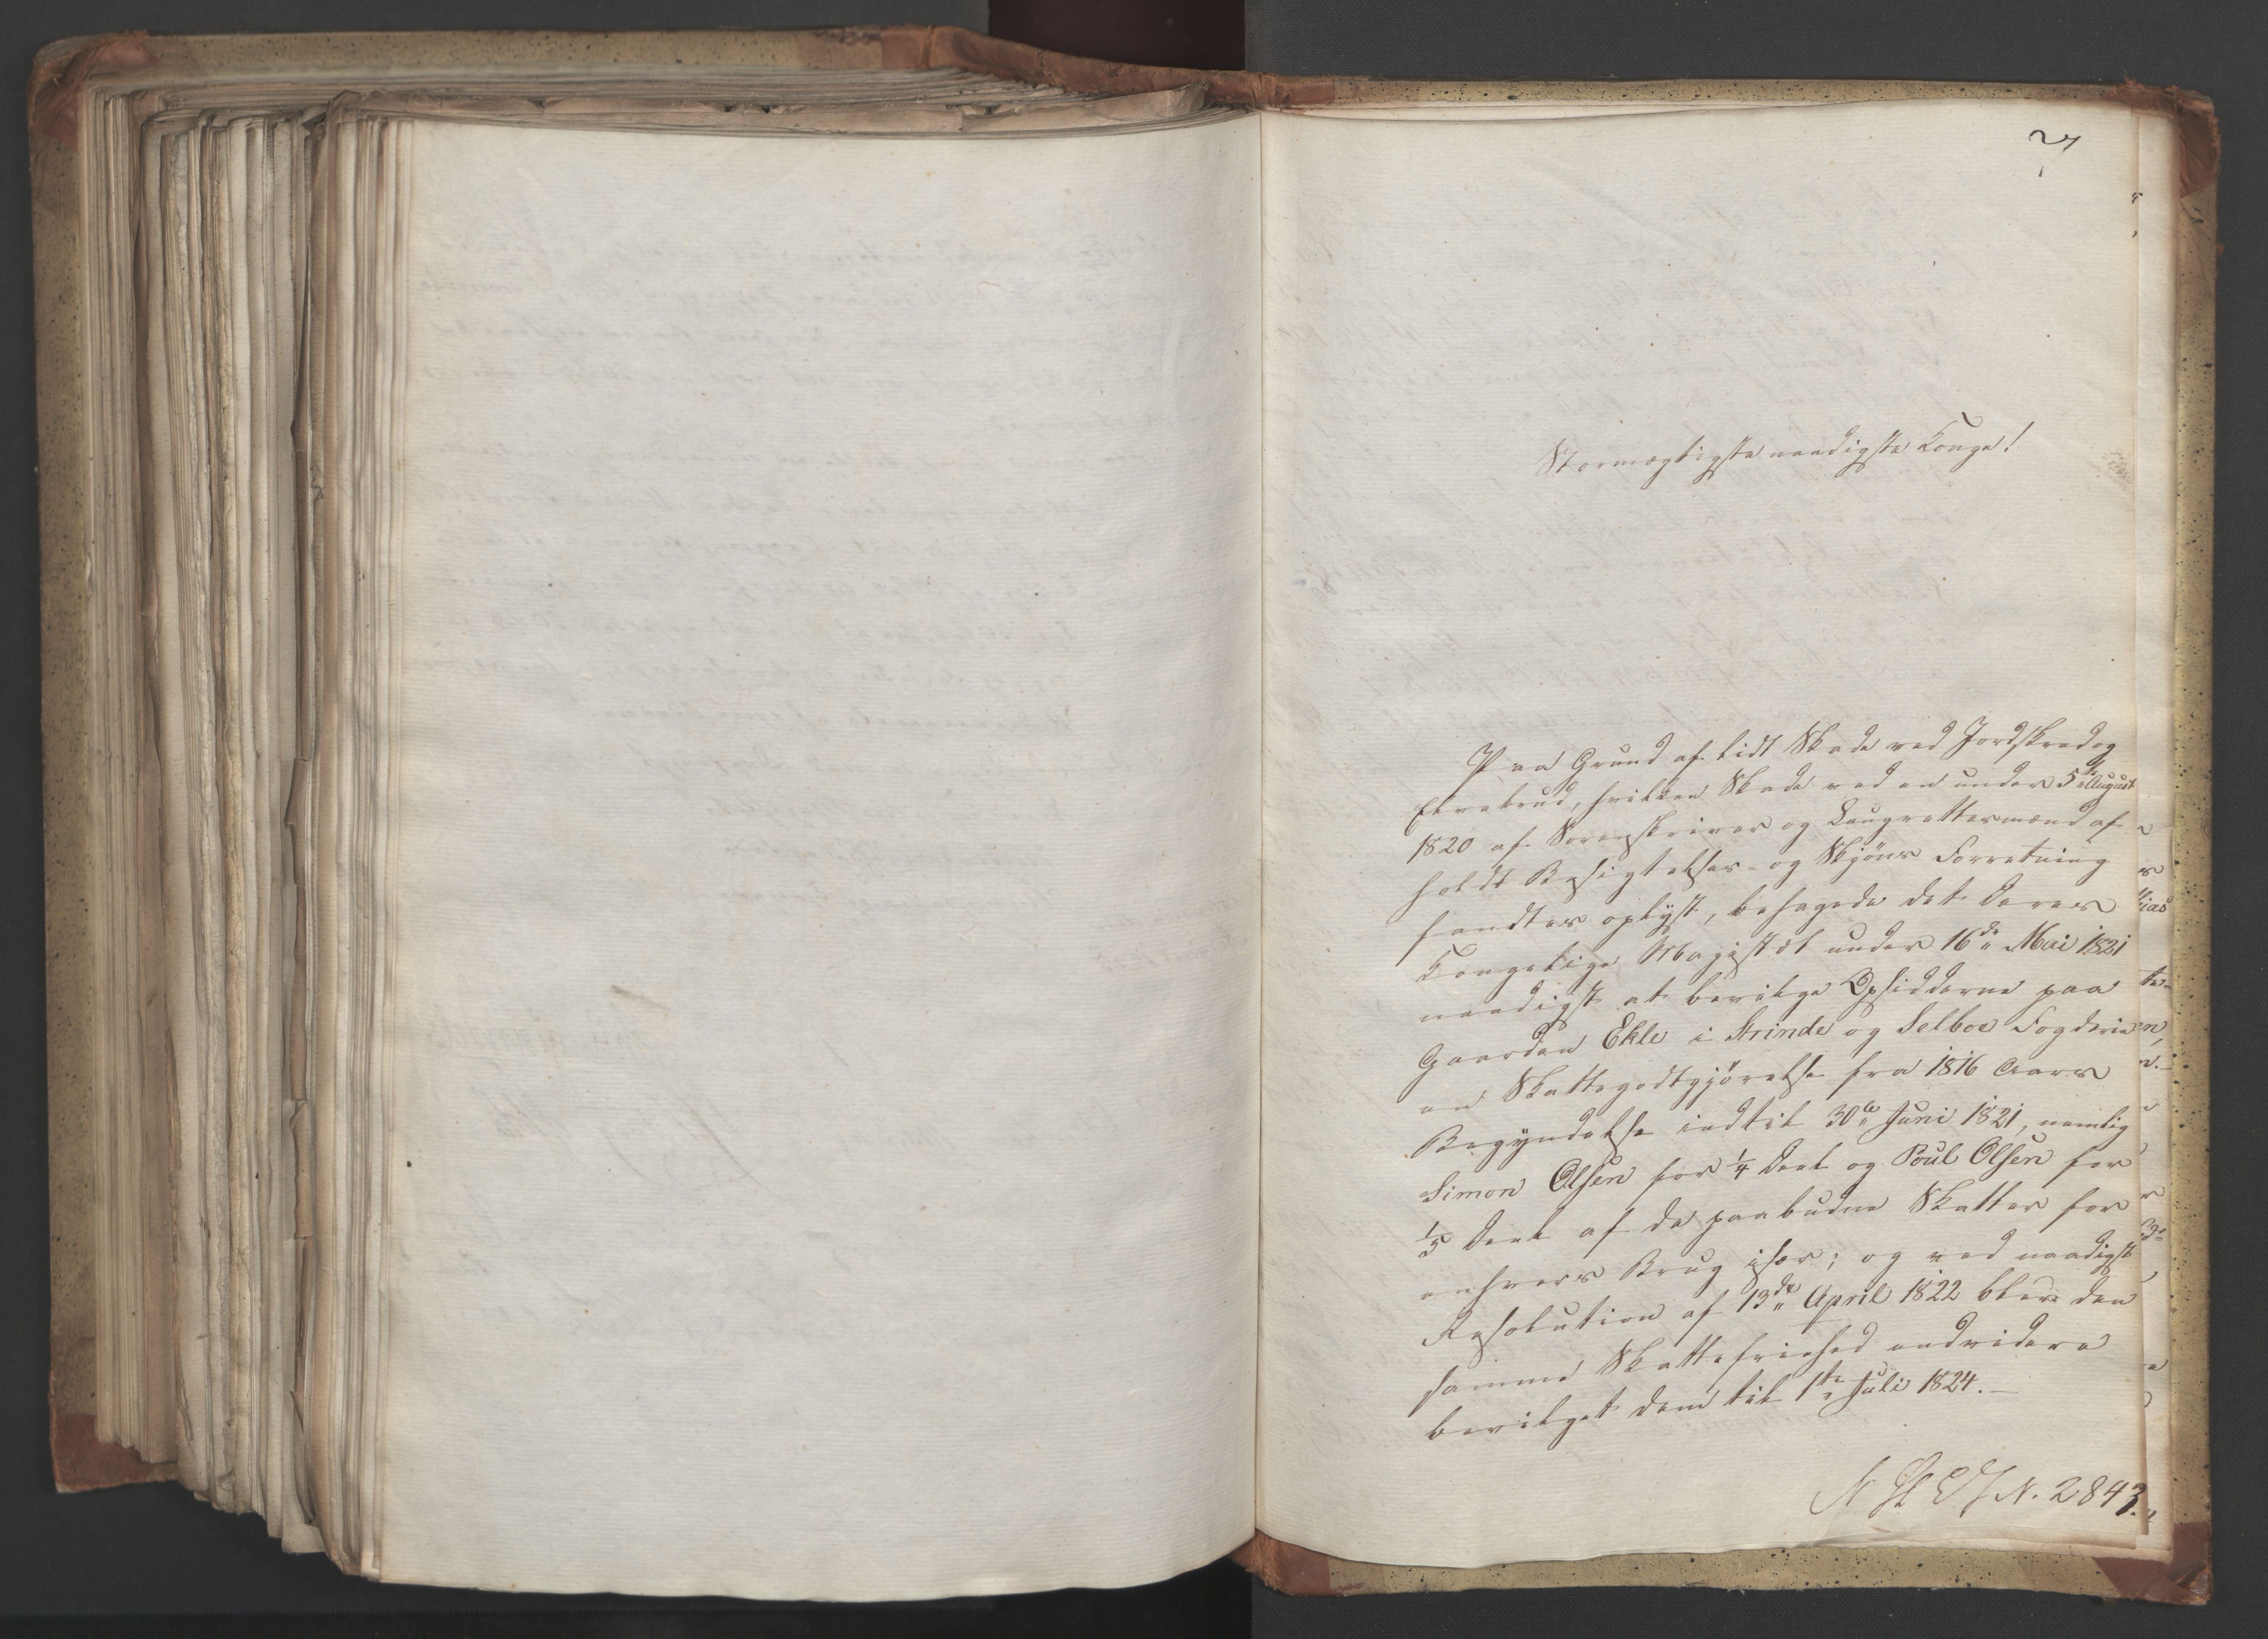 27
Stormægtigste naadigste Konge!
Paa Grund af lidt Skade ved Jordskred og
Elvebrud, hvilken Skade ved en under 5te August
1820 af Sorenskriver og Laugrettesmænd af-
holdt Besigtelses- og Skjöns Forretning
fandtes oplyst, behagede det Deres
Kongelige Majestæt under 16de Mai 1821
naadigst at bevilge Opsidderne paa
Gaarden Ekle i Strinde og Selboe Fogderie
en Skattegodtgjörelse fra 1816 Aars
Begyndelse indtil 30te Juni 1821, nemlig
Simon Olsen for 1/4 Deel og Poul Olsen for
1/5 Deel af de paabudne Skatter for
enhvers Brug især; og ved naadigst
Resolution af 13de April 1822 blev den
samme Skattefriehed endvidere
bevilget dem til 1te Juli 1824.
N. 2843.